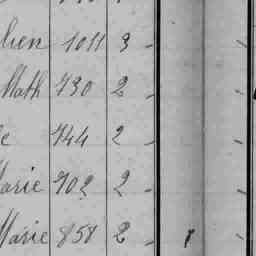 lien 1011 3
Math 730 2
e 744 2
Marie 702 2
Marie 858 2